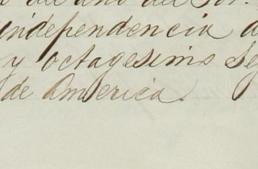 del año del Sor.
independencia d
y octagesimo Se
de America.